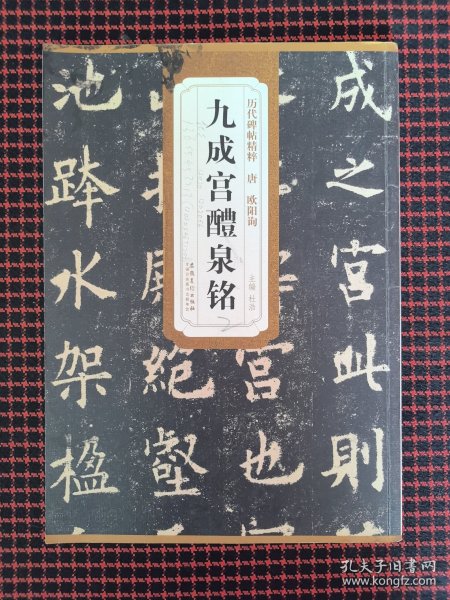 历代碑帖精粹 唐 欧阳询
九成宫醴泉铭
主编 杜浩
安徽美术出版社
成之宫此则
宫也
绝壑
池跸水架楹
孔夫子旧书网
www.kongfz.com